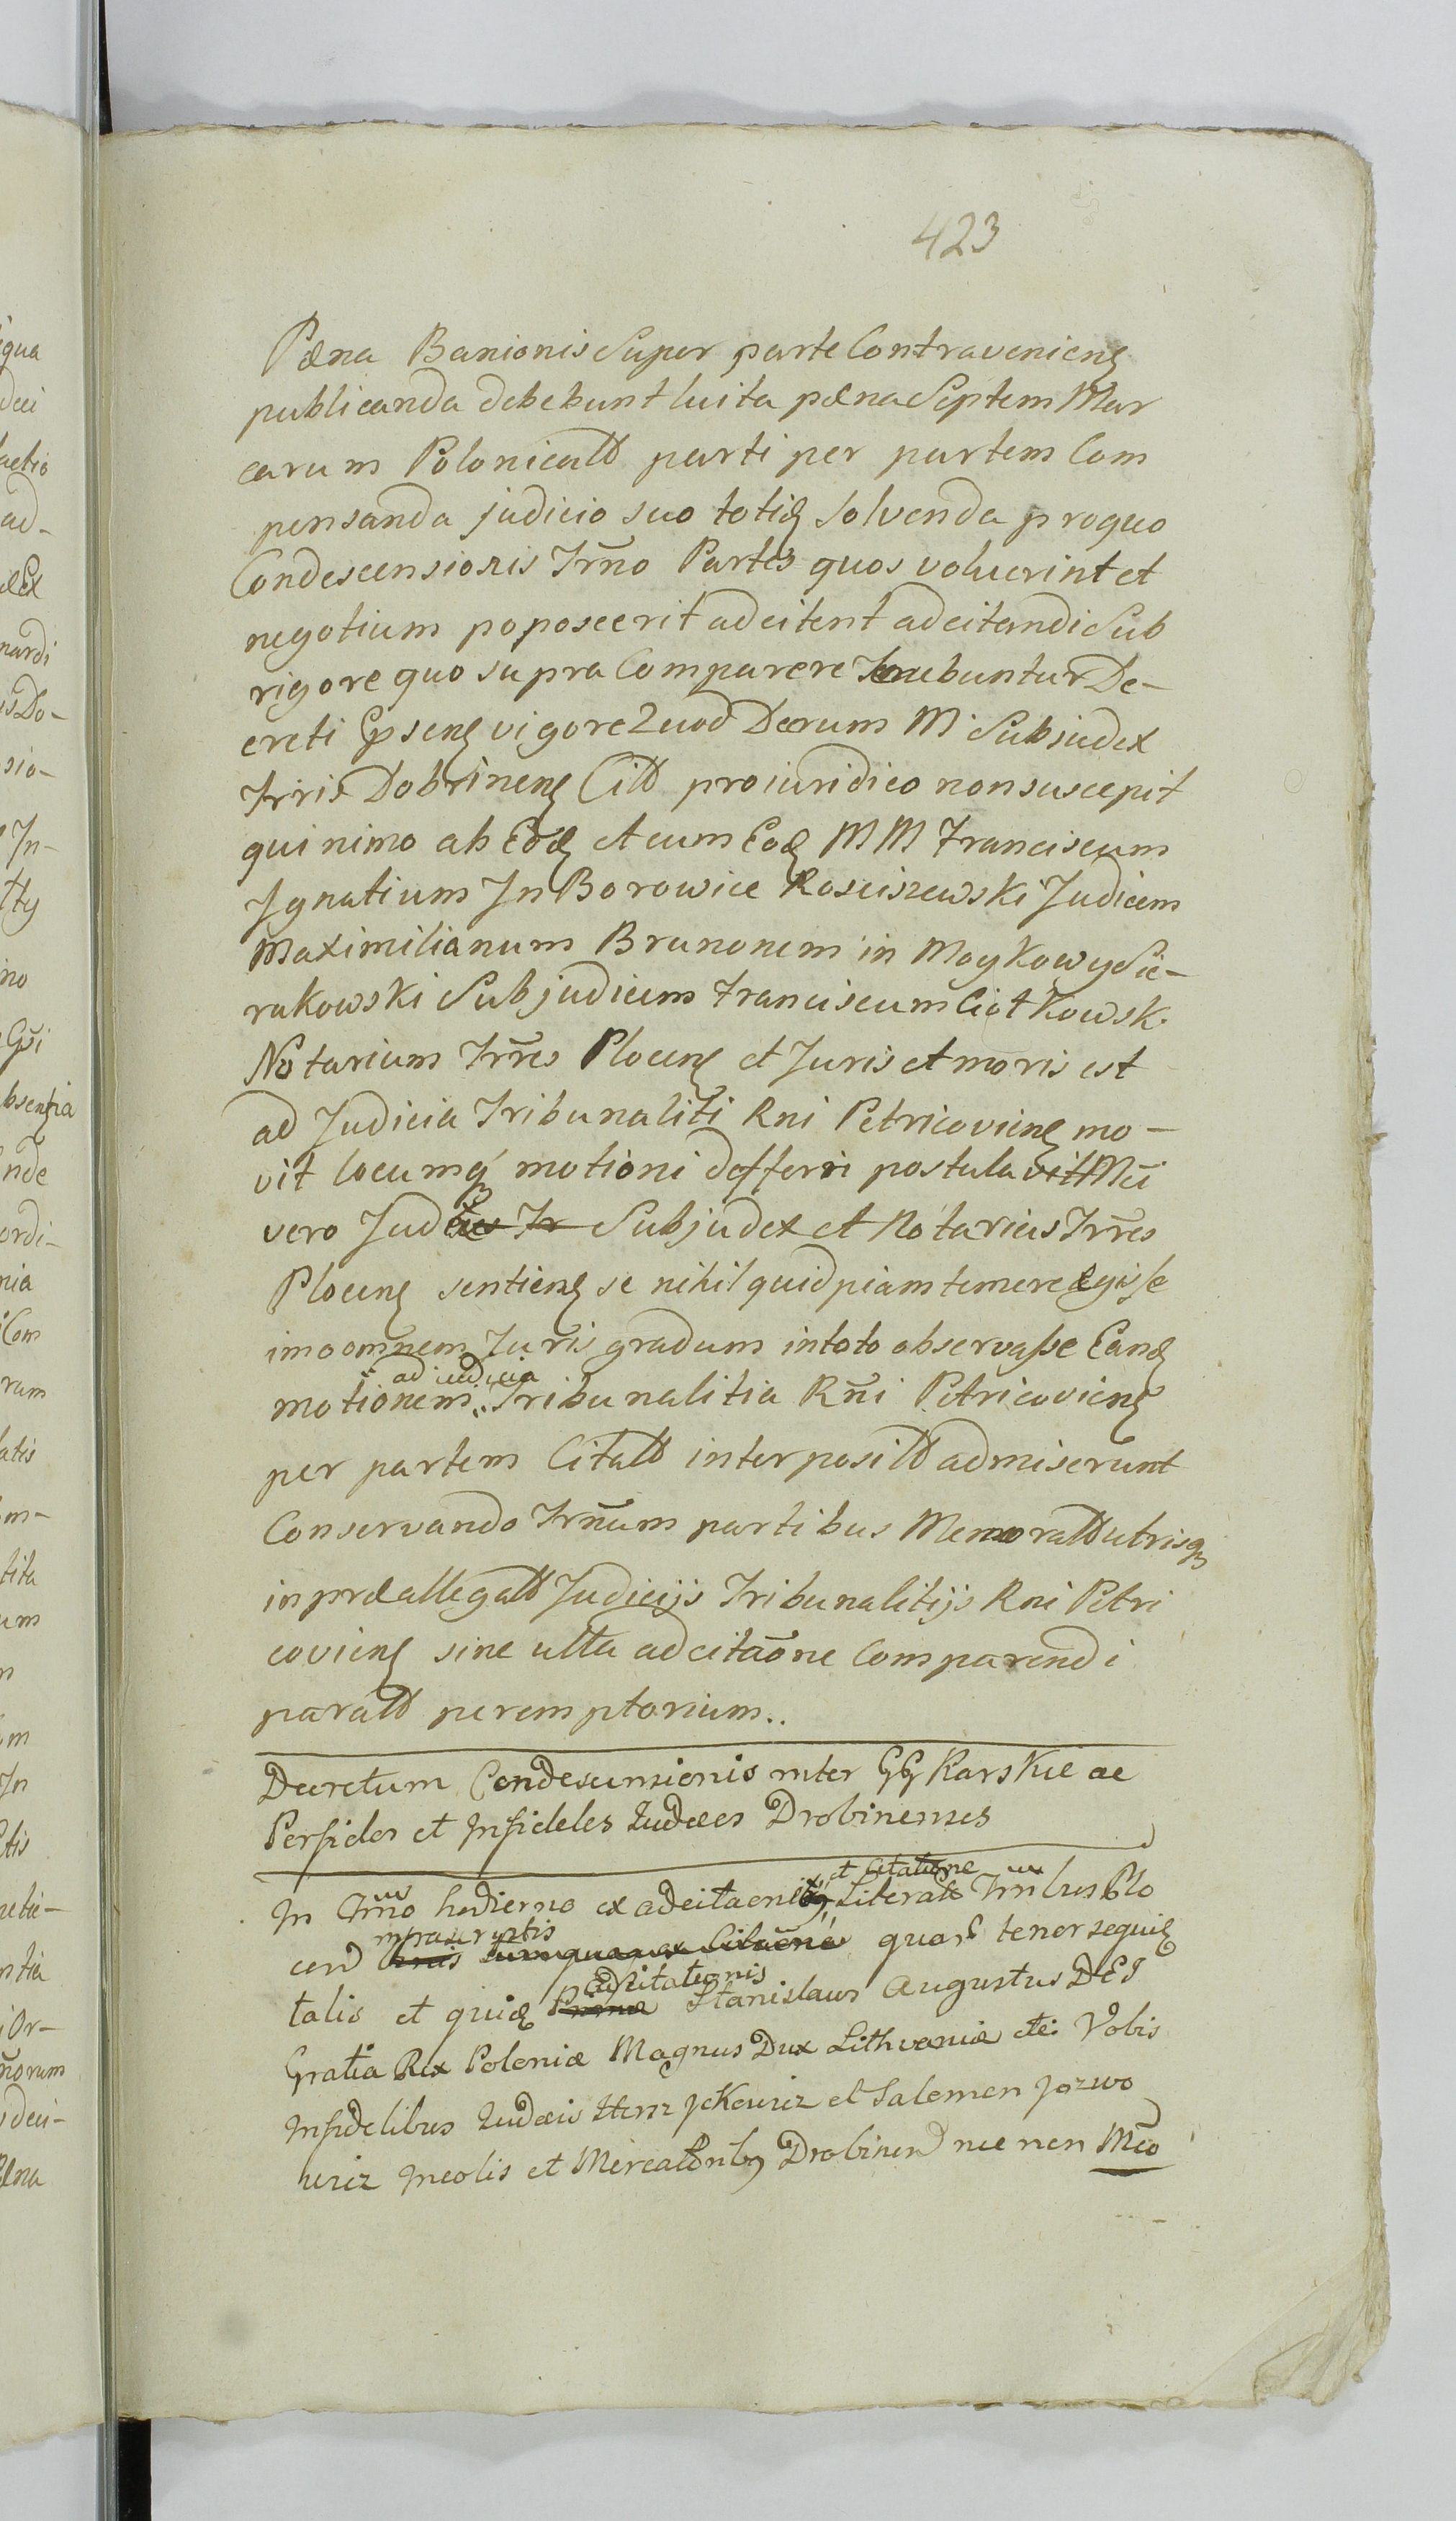 423
Pœna Banionis Super parte Contravenieng
publicanda debebunt luita pœna Septem Mar
carum Polonicatt parti per partem Com
pensanda judicio suo totiq solvenda pro quo
Condescensionis Trm̄no Partes quos voluerint et
negotium poposcerit adcitent adcitandi Sub
rigore quo supra Comparere tenebuntur De-
creti Epseng vigore Quod Decrum M. Subjudex
Trris Dobrineng Citt pro iuridico non suscepit
qui nimo ab Eodq et cum Eoq M M Franciscum
Ignatium In Borowice Rosciszewski Judicem
Maximilianum Brunonem in Moykowy Sie-
rakowski Subjudicem Franciscum Ciotkowsk.
Notarium Trr̄es Ploceng et Juris et moris est
ad Judicia Tribunaliti Rni Petricovieng mo-
vit locumq motioni defferri postulavit Mci
vero Judex Tr Subjudex et Notarius Trr̄es
Ploceng sentieng se nihil quidpiam temere egisse
imo omnem Juris gradum in toto observasse Eandq
ad iudicia
motionem Tribunalitia Rn̄i Petricovieng
per partem Citatt interpositt admiserunt
Conservando Trm̄um partibus Memoratt utrisq
in præallegatt Judicijs Tribunalitijs Rni Petri
covieng sine ulla adcitaōne Comparendi
paratt peremptorium..
Decretum Condescensionis inter GG Karskie ac
Perfidos et Infideles Judæos Drobinenses
et Citatione
In Trm̄o hodierno ex adcitaōne Literali Trm̄lus Plo
infrascriptis
cen quar tenor sequiq
Adcitationis
talis et quiq Primæ Stanislaus Augustus DEI
Gratia Rex Poloniæ Magnus Dux Lithvaniæ etc: Vobis
Infidelibus Judæis Herz Jckowicz et Salomon Jozwo
wicz Incolis et Mercatoribq Drobinen nec non Mco